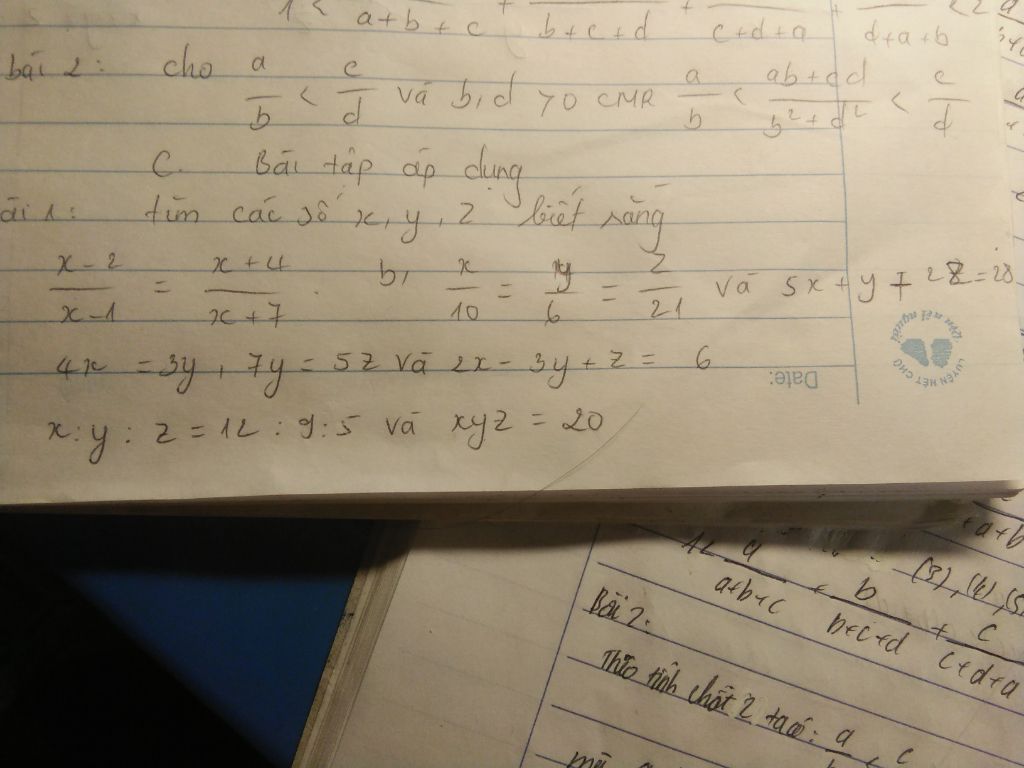 1 < / a+b+c + / b+c+d + / c+d+a + / d+a+b < 2
bài 2: cho a/b < c/d và b,d >0 CMR a/b < ab+cd/b²+d² < c/d
C. Bài tập áp dụng
ài 1: tìm các số x, y, z biết rằng
x-2/x-1 = x+4/x+7. b, x/10 = y/6 = z/21 và 5x+y-2z=28
4x = 3y, 7y = 5z và 2x - 3y + z = 6
x:y:z = 12:9:5 và xyz = 20
Date:
LUYỆN NÉT CHỮ
1< a/a+b+c + b/b+c+d + c/c+d+a
(3), (4), (5
+a+b
Bài 2:
Theo tính chất 2 ta có: a/b < c
mà